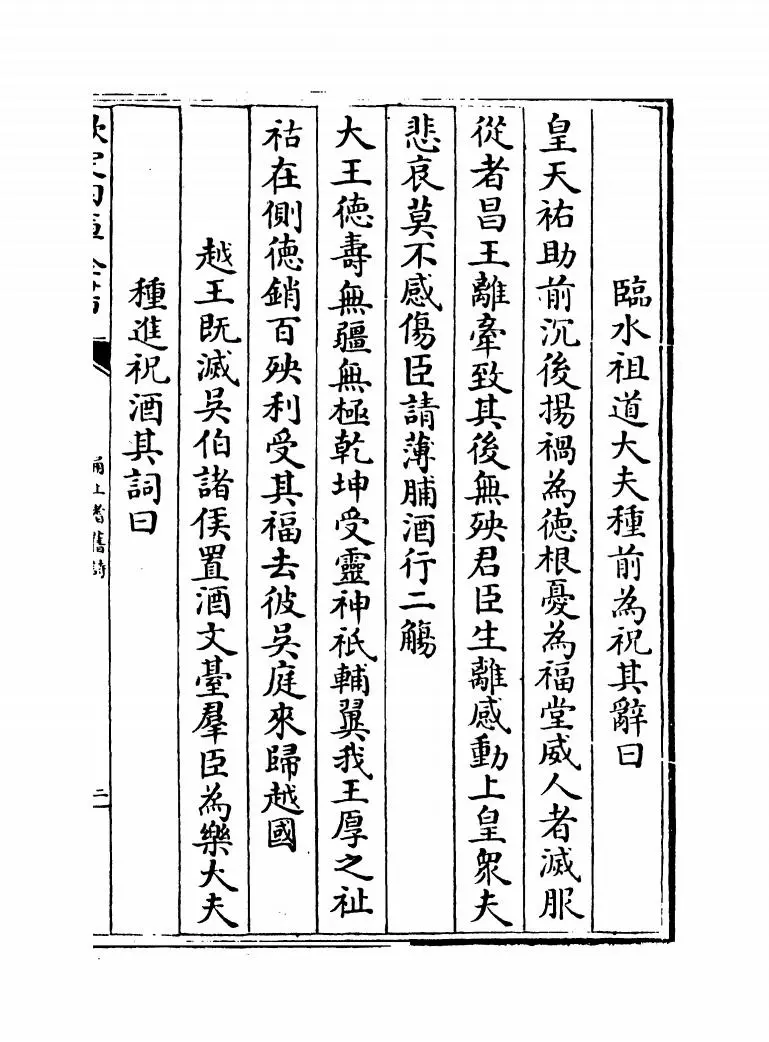 臨水祖道大夫種前為祝其辭曰
皇天祐助前沉後揚禍為德根憂為福堂威人者滅服
從者昌王離牽致其後無殃君臣生離感動上皇衆夫
悲哀莫不感傷臣請薄脯酒行二觴
大王德壽無疆無極乾坤受靈神祇輔翼我王厚之祉
祜在側德銷百殃利受其福去彼吳庭來歸越國
越王既滅吳伯諸侯置酒文臺羣臣為樂大夫
種進祝酒其詞曰
欽定四庫全書
甬上耆舊詩
二